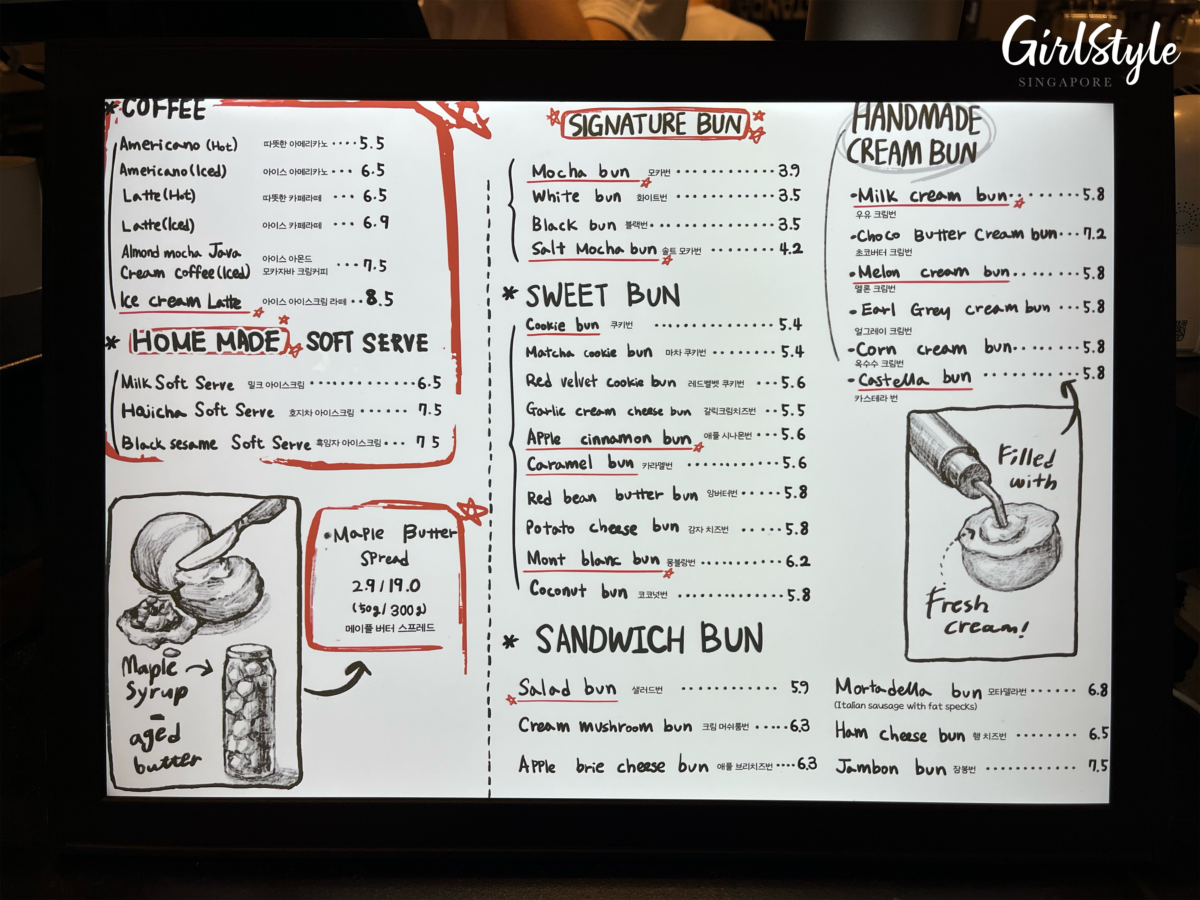 GirlStyle
SINGAPORE
* COFFEE
Americano (Hot) 따뜻한 아메리카노 ····5.5
Americano (Iced) 아이스 아메리카노 ··· 6.5
Latte (Hot) 따뜻한 카페라떼 ··· 6.5
Latte (Iced) 아이스 카페라떼 ··· 6.9
Almond mocha Java
Cream coffee (Iced) 아이스 아몬드
모카자바 크림커피 ···7.5
Ice cream Latte 아이스 아이스크림 라떼 ··8.5
* HOME MADE SOFT SERVE
Milk Soft Serve 밀크 아이스크림 ··············6.5
Hojicha Soft Serve 호지차 아이스크림 ······ 7.5
Black sesame Soft Serve 흑임자 아이스크림 ··· 7 5
Maple
Syrup
aged
butter
• Maple Butter
Spread
2.9 / 19.0
(50g / 300g)
메이플 버터 스프레드
SIGNATURE BUN
Mocha bun 모카번 ············3.9
White bun 화이트번 ············3.5
Black bun 블랙번 ············3.5
Salt Mocha bun 솔트 모카번 ········4.2
* SWEET BUN
Cookie bun 쿠키번 ············5.4
Matcha cookie bun 마차 쿠키번 ······5.4
Red velvet cookie bun 레드벨벳 쿠키번 ···5.6
Garlic cream cheese bun 갈릭크림치즈번 ··5.5
Apple cinnamon bun 애플 시나몬번 ···5.6
Caramel bun 카라멜번 ·········5.6
Red bean butter bun 앙버터번 ·····5.8
Potato cheese bun 감자 치즈번 ·····5.8
Mont blanc bun 몽블랑번 ·········6.2
Coconut bun 코코넛번 ··········5.8
* SANDWICH BUN
Salad bun 샐러드번 ··········· 5.9
Cream mushroom bun 크림 머쉬룸번 ·····6.3
Apple brie cheese bun 애플 브리치즈번 ····6.3
Mortadella bun 모타델라번 ······ 6.8
(Italian sausage with fat specks)
Ham cheese bun 햄 치즈번 ········ 6.5
Jambon bun 잠봉번 ··········· 7.5
HANDMADE
CREAM BUN
•Milk cream bun ·······5.8
우유 크림번
•Choco Butter Cream bun···7.2
초코버터 크림번
•Melon cream bun ········5.8
멜론 크림번
•Earl Grey cream bun ···5.8
얼그레이 크림번
•Corn cream bun ········5.8
옥수수 크림번
•Castella bun ···········5.8
카스테라 번
Filled
with
Fresh
cream!